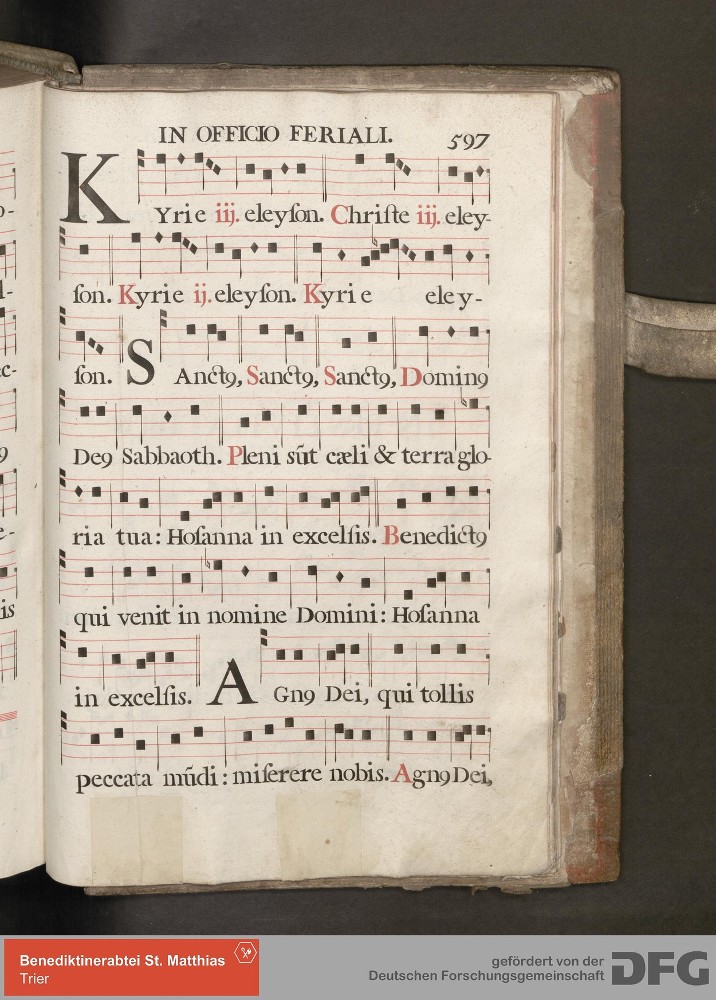 IN OFFICIO FERIALI. 597
KYrie iij. eleyſon. Chriſte iij. eley-
ſon. Kyrie ij. eleyſon. Kyrie eley-
ſon. SAnctꝰ, Sanctꝰ, Sanctꝰ, Dominꝰ
Deꝰ Sabbaoth. Pleni sūt cæli & terra glo-
ria tua: Hoſanna in excelſis. Benedictꝰ
qui venit in nomine Domini: Hoſanna
in excelſis. AGnꝰ Dei, qui tollis
peccata mūdi: miſerere nobis. Agnꝰ Dei,
Benediktinerabtei St. Matthias
Trier
gefördert von der
Deutschen Forschungsgemeinschaft
DFG